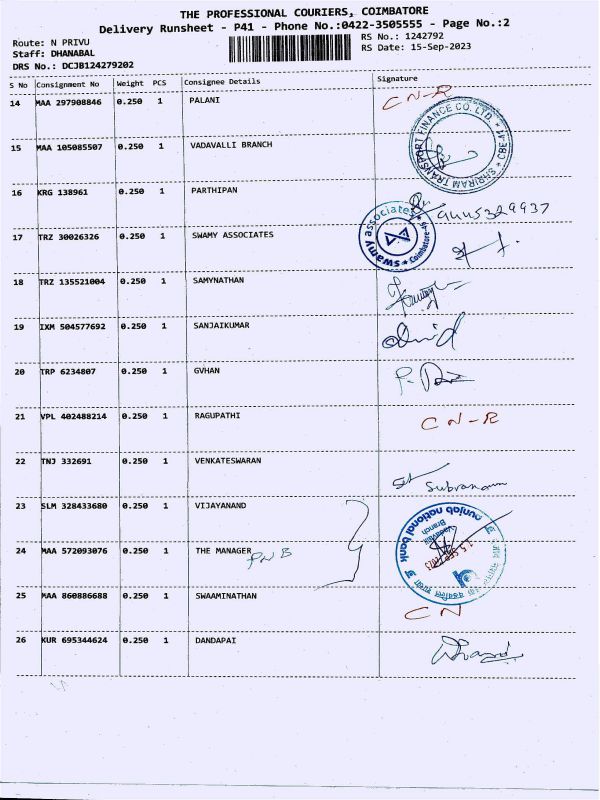 THE PROFESSIONAL COURIERS, COIMBATORE
Delivery Runsheet - P41 - Phone No.:0422-3505555 - Page No.:2
Route: N PRIVU
Staff: DHANABAL
DRS No.: DCJB124279202
RS No.: 1242792
RS Date: 15-Sep-2023
S No Consignment No Weight PCS Consignee Details Signature
14 MAA 297908846 0.250 1 PALANI CN-R
SRIRAM TRANSPORT FINANCE CO. LTD. * CBE-41 *
15 MAA 105085507 0.250 1 VADAVALLI BRANCH
16 KRG 138961 0.250 1 PARTHIPAN 9445329937
swamy associates * Coimbatore-41 *
17 TRZ 30026326 0.250 1 SWAMY ASSOCIATES
18 TRZ 135521004 0.250 1 SAMYNATHAN
19 IXM 504577692 0.250 1 SANJAIKUMAR
20 TRP 6234807 0.250 1 GVHAN
21 VPL 402488214 0.250 1 RAGUPATHI CN-R
22 TNJ 332691 0.250 1 VENKATESWARAN
23 SLM 328433680 0.250 1 VIJAYANAND
punjab national bank
Vadavalli Branch
15 SEP 2023
24 MAA 572093076 0.250 1 THE MANAGER PNB
25 MAA 860886688 0.250 1 SWAAMINATHAN CN
26 KUR 695344624 0.250 1 DANDAPAI